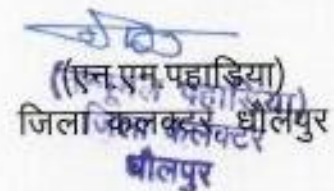 (एन.एम.पहाडिया)
जिला कलक्टर धौलपुर
जिला कलक्टर
धौलपुर